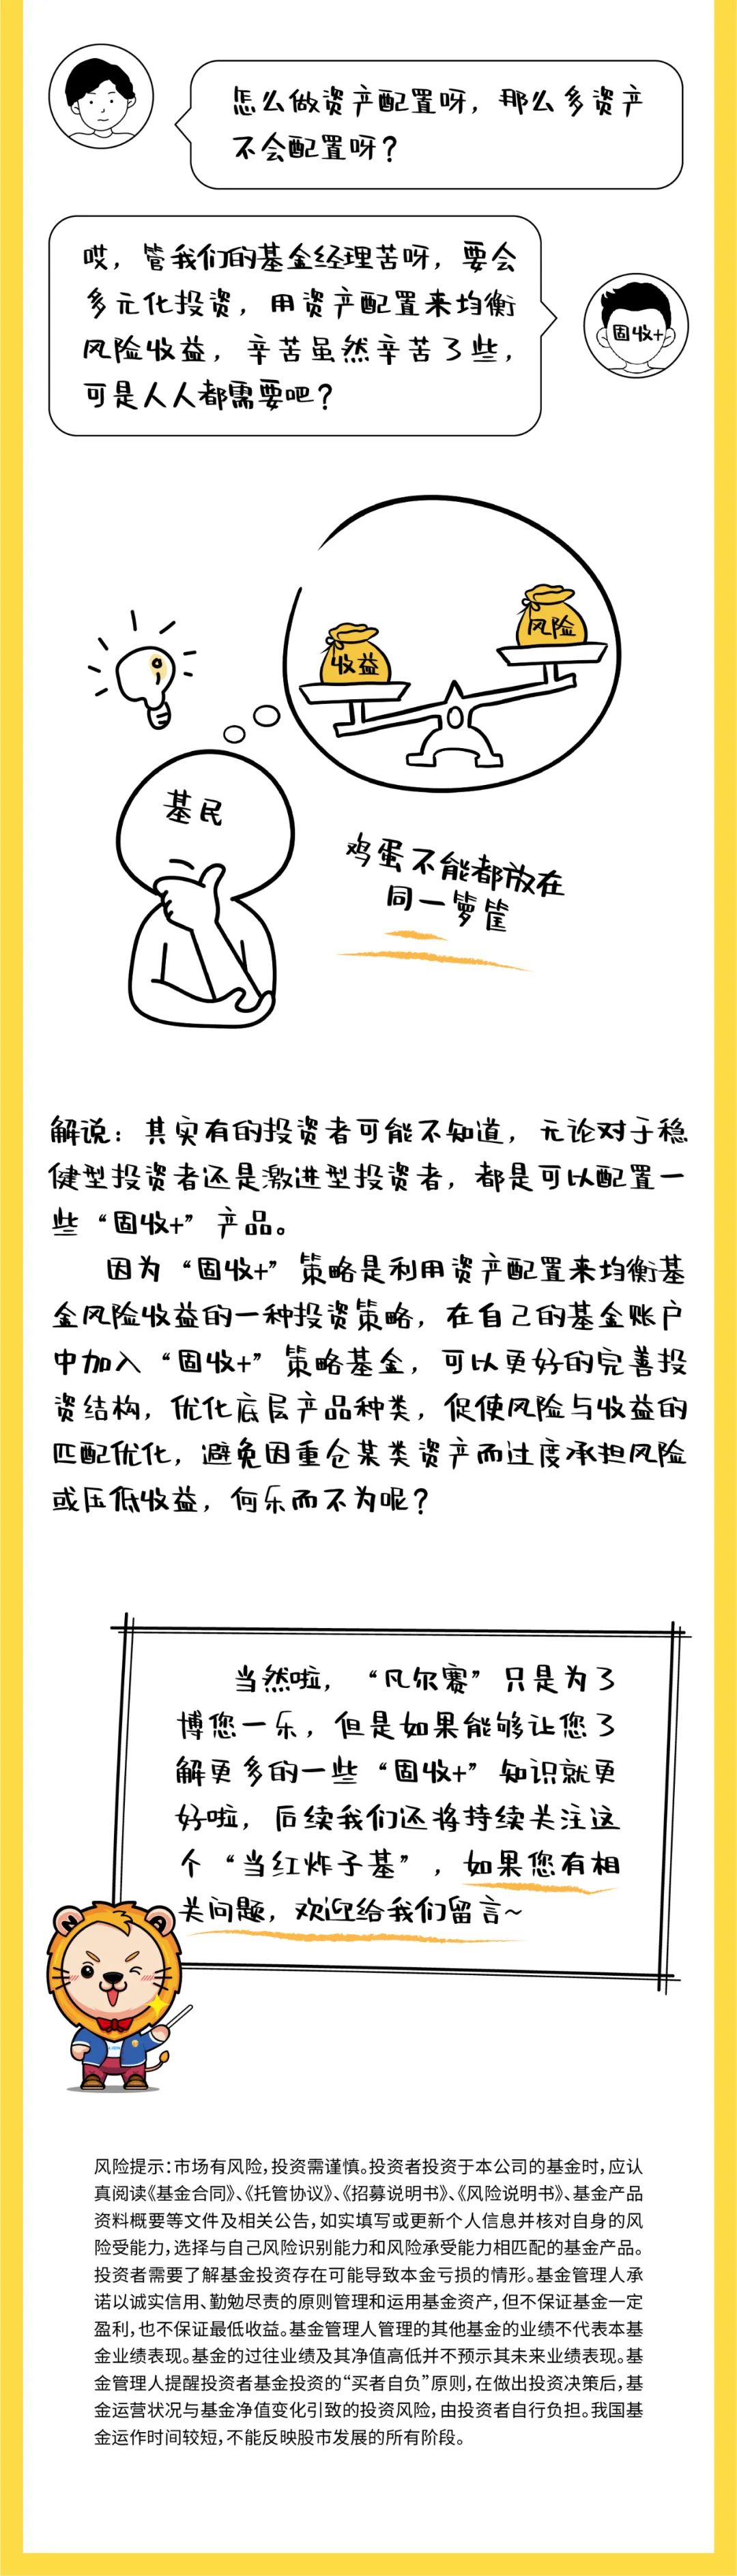 怎么做资产配置呀，那么多资产
不会配置呀？
哎，管我们的基金经理苦呀，要会
多元化投资，用资产配置来均衡
风险收益，辛苦虽然辛苦了些，
可是人人都需要吧？
固收+
风险
收益
基民
鸡蛋不能都放在
同一箩筐
解说：其实有的投资者可能不知道，无论对于稳
健型投资者还是激进型投资者，都是可以配置一
些“固收+”产品。
因为“固收+”策略是利用资产配置来均衡基
金风险收益的一种投资策略，在自己的基金账户
中加入“固收+”策略基金，可以更好的完善投
资结构，优化底层产品种类，促使风险与收益的
匹配优化，避免因重仓某类资产而过度承担风险
或压低收益，何乐而不为呢？
当然啦，“凡尔赛”只是为了
博您一乐，但是如果能够让您了
解更多的一些“固收+”知识就更
好啦，后续我们还将持续关注这
个“当红炸子基”，如果您有相
关问题，欢迎给我们留言~
风险提示：市场有风险，投资需谨慎。投资者投资于本公司的基金时，应认
真阅读《基金合同》、《托管协议》、《招募说明书》、《风险说明书》、基金产品
资料概要等文件及相关公告，如实填写或更新个人信息并核对自身的风
险受能力，选择与自己风险识别能力和风险承受能力相匹配的基金产品。
投资者需要了解基金投资存在可能导致本金亏损的情形。基金管理人承
诺以诚实信用、勤勉尽责的原则管理和运用基金资产，但不保证基金一定
盈利，也不保证最低收益。基金管理人管理的其他基金的业绩不代表本基
金业绩表现。基金的过往业绩及其净值高低并不预示其未来业绩表现。基
金管理人提醒投资者基金投资的“买者自负”原则，在做出投资决策后，基
金运营状况与基金净值变化引致的投资风险，由投资者自行负担。我国基
金运作时间较短，不能反映股市发展的所有阶段。